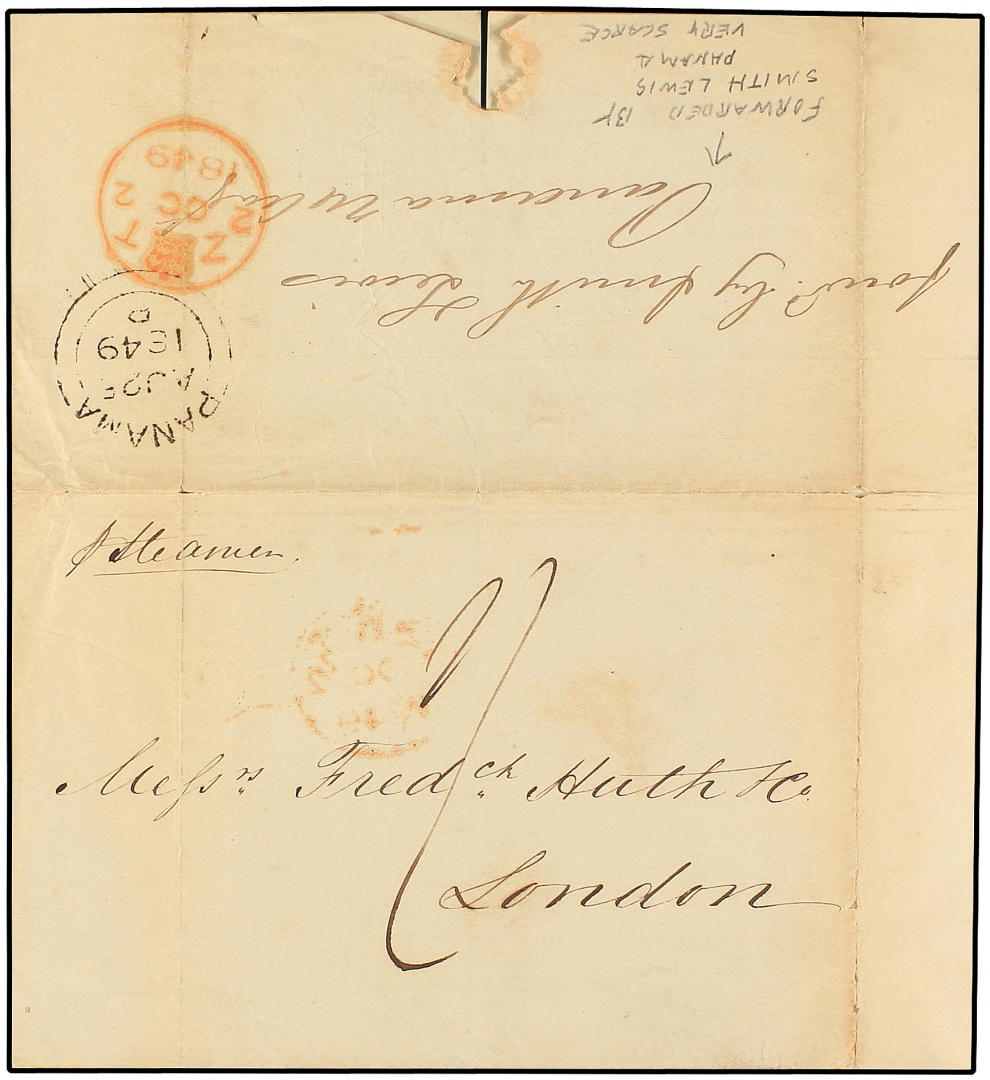 VERY SCARCE
PANAMA
SMITH LEWIS
FORWARDED BY
Panama
forwd. by Smith Lewis
2 OC 2
1849
PANAMA
1849
p Steamer.
Messrs. Fredck. Huth & Co.
London